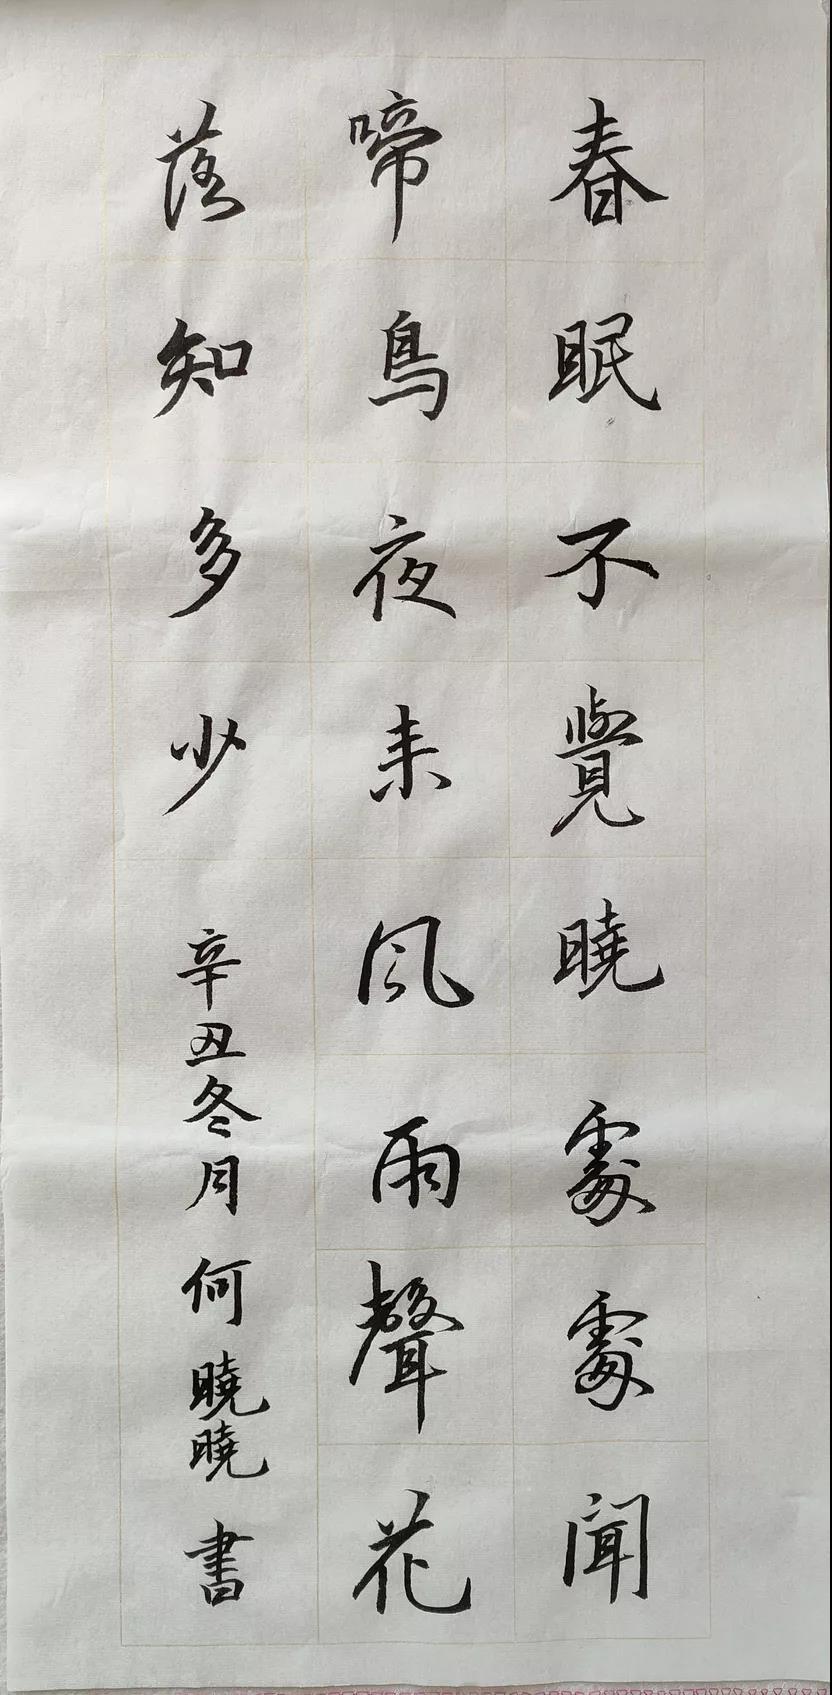 春眠不覺曉處處聞
啼鳥夜来風雨聲花
落知多少
辛丑冬月何曉曉書